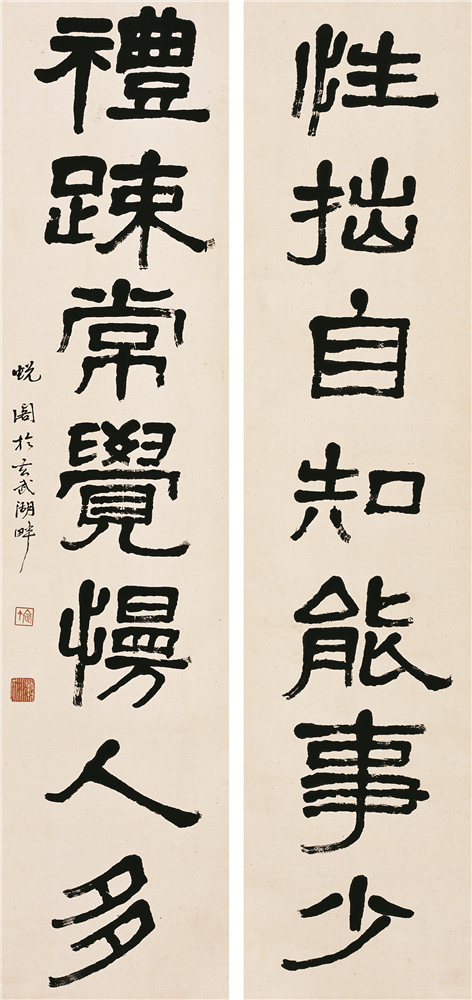 性拙自知能事少
禮踈常覺慢人多
蛻閣於玄武湖畔